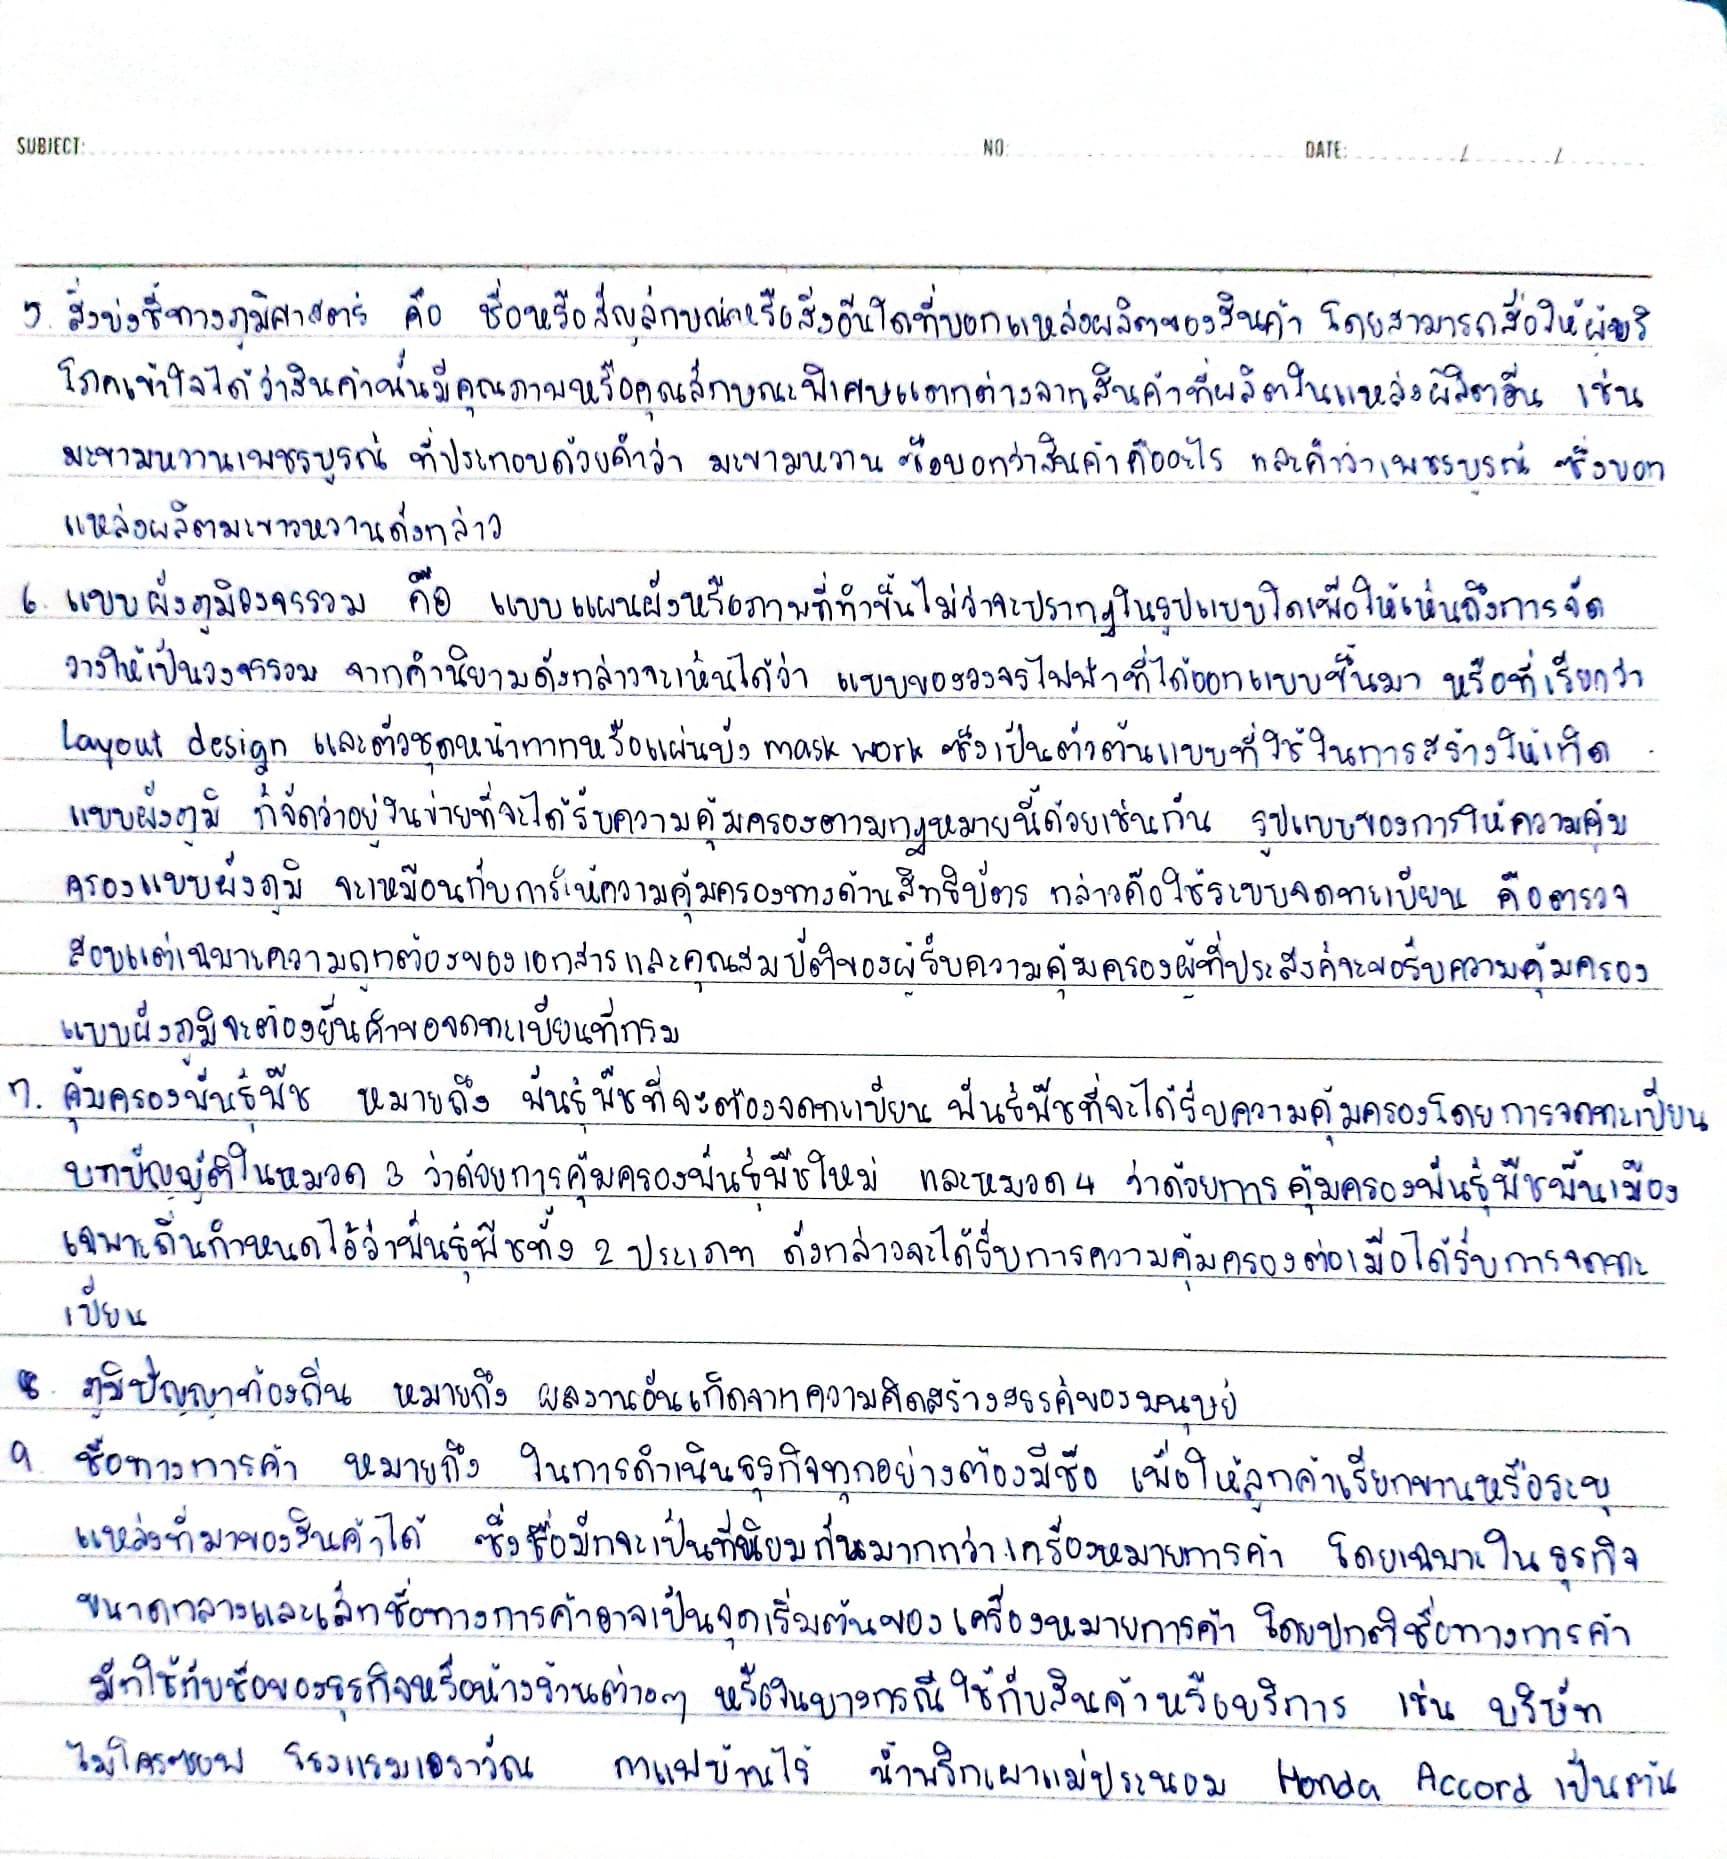 SUBJECT: NO: DATE: / /
5. สิ่งบ่งชี้ทางภูมิศาสตร์ คือ ชื่อหรือสัญลักษณ์หรือสิ่งอื่นใดที่บอกแหล่งผลิตของสินค้า โดยสามารถสื่อให้ผู้บริ
โภคเข้าใจได้ว่าสินค้านั้นมีคุณภาพหรือคุณลักษณะพิเศษแตกต่างจากสินค้าที่ผลิตในแหล่งผลิตอื่น เช่น
มะขามหวานเพชรบูรณ์ ที่ประกอบด้วยคำว่า มะขามหวาน ซึ่งบอกว่าสินค้าคืออะไร และคำว่าเพชรบูรณ์ ซึ่งบอก
แหล่งผลิตมะขาวหวานดังกล่าว
6. แบบผังภูมิของจรรวม คือ แบบแผนผังหรือภาพที่ทำขึ้นไม่ว่าจะปรากฏในรูปแบบใดเพื่อให้เห็นถึงการจัด
วางให้เป็นวงจรรวม จากคำนิยามดังกล่าวจะเห็นได้ว่า แบบของวงจรไฟฟ้าที่ได้ออกแบบขึ้นมา หรือที่เรียกว่า
Layout design และตัวชุดหน้ากากหรือแผ่นบัง mask work ซึ่งเป็นตัวต้นแบบที่ใช้ในการสร้างให้เกิด
แบบผังภูมิ ก็จัดว่าอยู่ในข่ายที่จะได้รับความคุ้มครองตามกฎหมายนี้ด้วยเช่นกัน รูปแบบของการให้ความคุ้ม
ครองแบบผังภูมิ จะเหมือนกับการให้ความคุ้มครองทางด้านสิทธิบัตร กล่าวคือใช้ระบบจดทะเบียน คือตรวจ
สอบแต่เฉพาะความถูกต้องของเอกสารและคุณสมบัติของผู้รับความคุ้มครองผู้ที่ประสงค์จะขอรับความคุ้มครอง
แบบผังภูมิจะต้องยื่นคำขอจดทะเบียนที่กรม
7. คุ้มครองพันธุ์พืช หมายถึง พันธุ์พืชที่จะต้องจดทะเบียน พันธุ์พืชที่จะได้รับความคุ้มครองโดยการจดทะเบียน
บทบัญญัติในหมวด 3 ว่าด้วยการคุ้มครองพันธุ์พืชใหม่ และหมวด 4 ว่าด้วยการคุ้มครองพันธุ์พืชพื้นเมือง
เฉพาะถิ่นกำหนดไว้ว่าพันธุ์พืชทั้ง 2 ประเภท ดังกล่าวจะได้รับการความคุ้มครองต่อเมื่อได้รับการจดทะ
เบียน
8. ภูมิปัญญาท้องถิ่น หมายถึง ผลงานอันเกิดจากความคิดสร้างสรรค์ของมนุษย์
9. ชื่อทางการค้า หมายถึง ในการดำเนินธุรกิจทุกอย่างต้องมีชื่อ เพื่อให้ลูกค้าเรียกขานหรือระบุ
แหล่งที่มาของสินค้าได้ ซึ่งชื่อมักจะเป็นที่นิยมกันมากกว่าเครื่องหมายการค้า โดยเฉพาะในธุรกิจ
ขนาดกลางและเล็กชื่อทางการค้าอาจเป็นจุดเริ่มต้นของเครื่องหมายการค้า โดยปกติชื่อทางการค้า
มักใช้กับชื่อของธุรกิจหรือห้างร้านต่างๆ หรือในบางกรณีใช้กับสินค้าหรือบริการ เช่น บริษัท
ไมโครซอฟ โรงแรมเอราวัณ กาแฟบ้านไร่ น้ำพริกเผาแม่ประนอม Honda Accord เป็นต้น